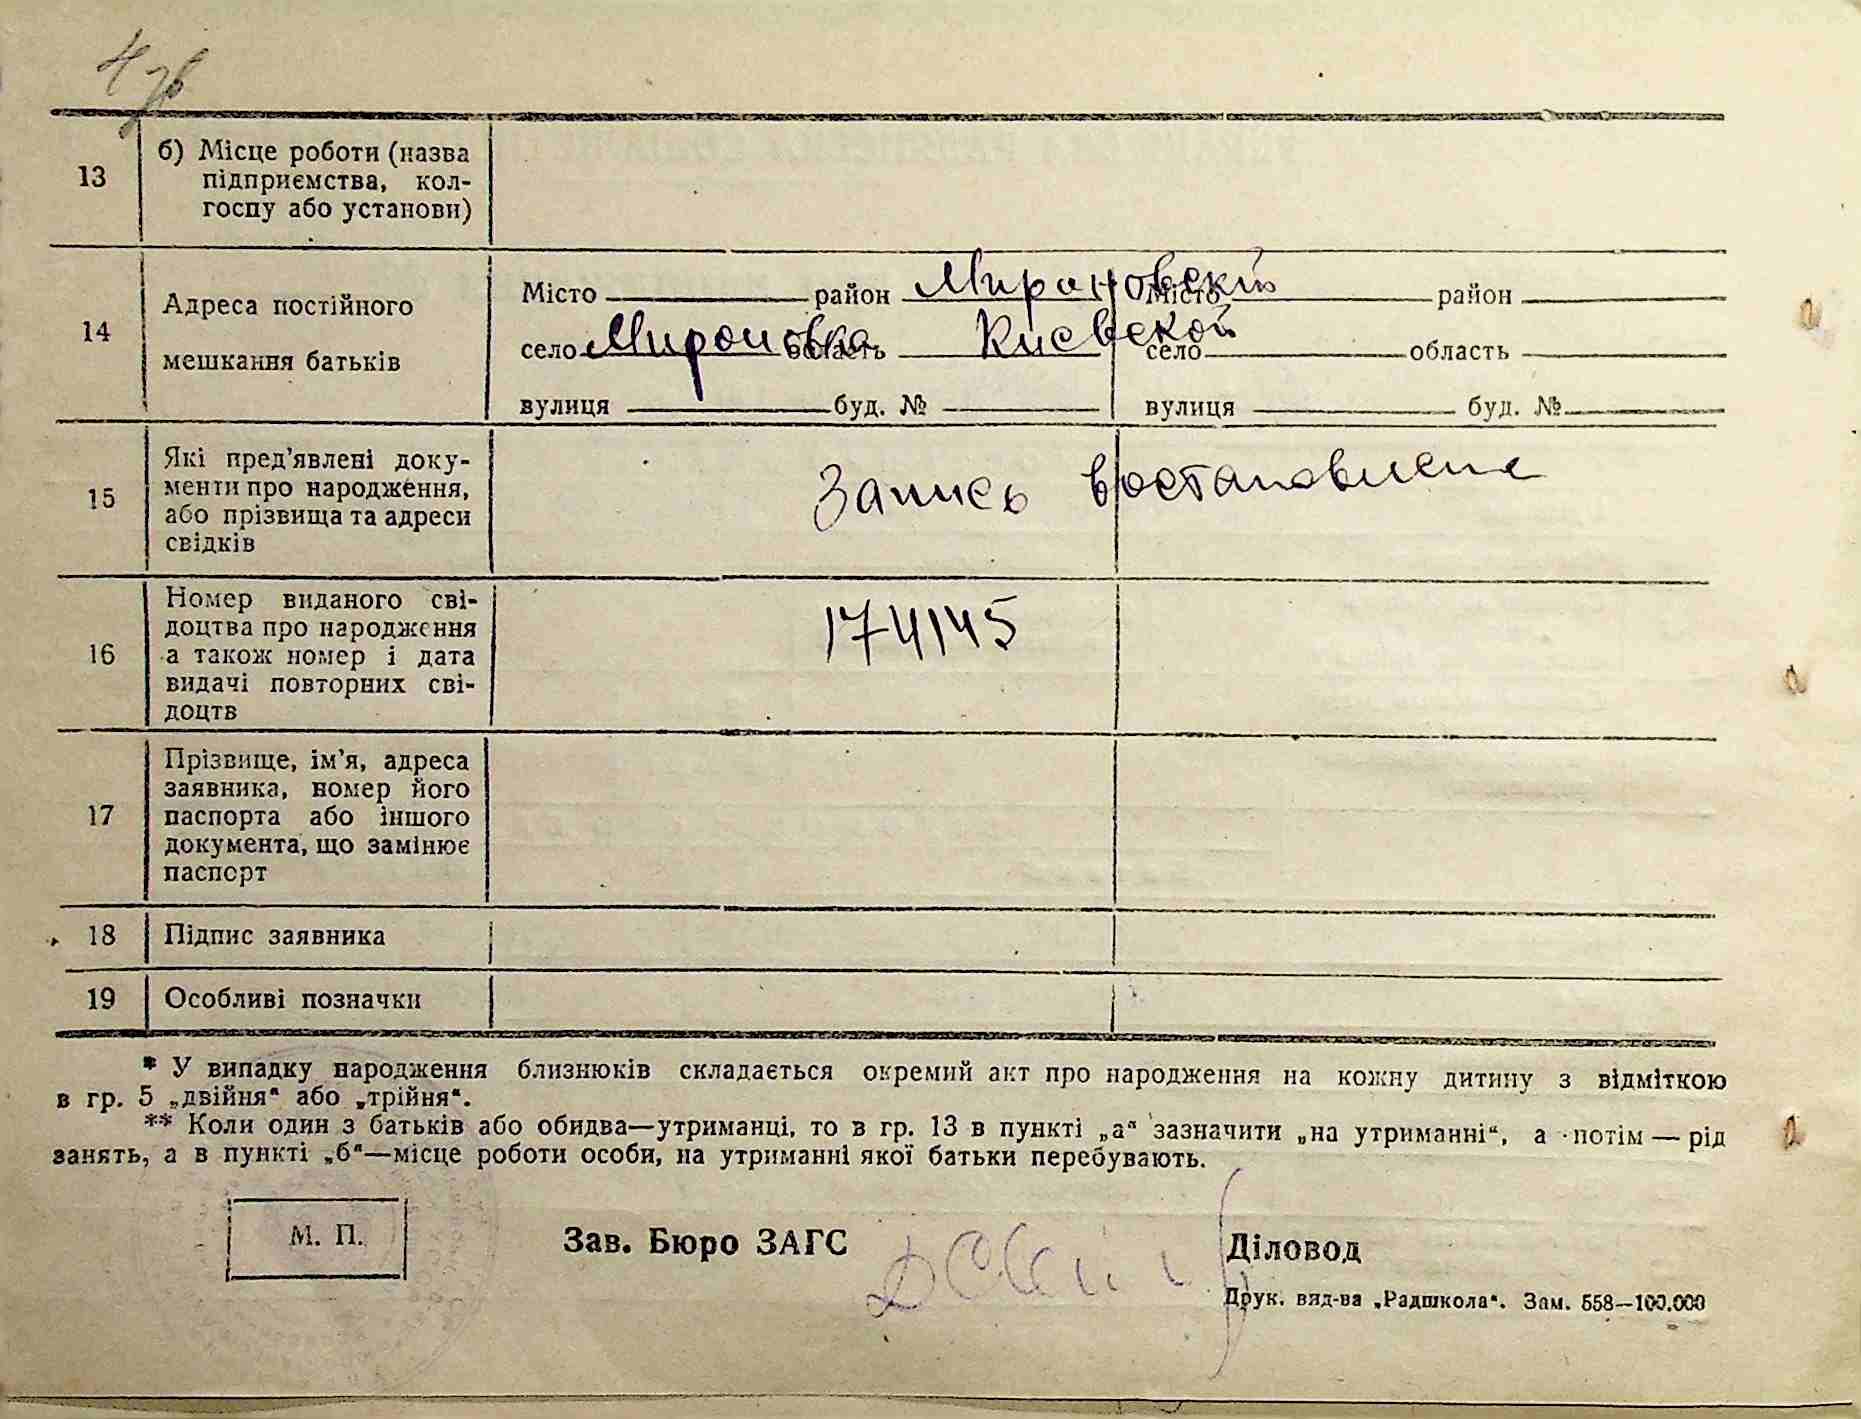 13
б) Місце роботи (назва
підприємства, кол-
госпу або установи)
14
Адреса постійного
мешкання батьків
Місто район Мироновскій Місто район
село Мироновка область Киевской село область
вулиця буд. № вулиця буд. №
15
Які пред'явлені доку-
менти про народження,
або прізвища та адреси
свідків
Запись востановлена
16
Номер виданого сві-
доцтва про народження
а також номер і дата
видачі повторних сві-
доцтв
174145
17
Прізвище, ім'я, адреса
заявника, номер його
паспорта або іншого
документа, що замінює
паспорт
18 Підпис заявника
19 Особливі позначки
* У випадку народження близнюків складається окремий акт про народження на кожну дитину з відміткою
в гр. 5 „двійня“ або „трійня“.
** Коли один з батьків або обидва—утриманці, то в гр. 13 в пункті „а“ зазначити „на утриманні“, а потім — рід
занять, а в пункті „б“—місце роботи особи, на утриманні якої батьки перебувають.
М. П. Зав. Бюро ЗАГС Діловод
Друк. вид-ва „Радшкола“. Зам. 558—100.000